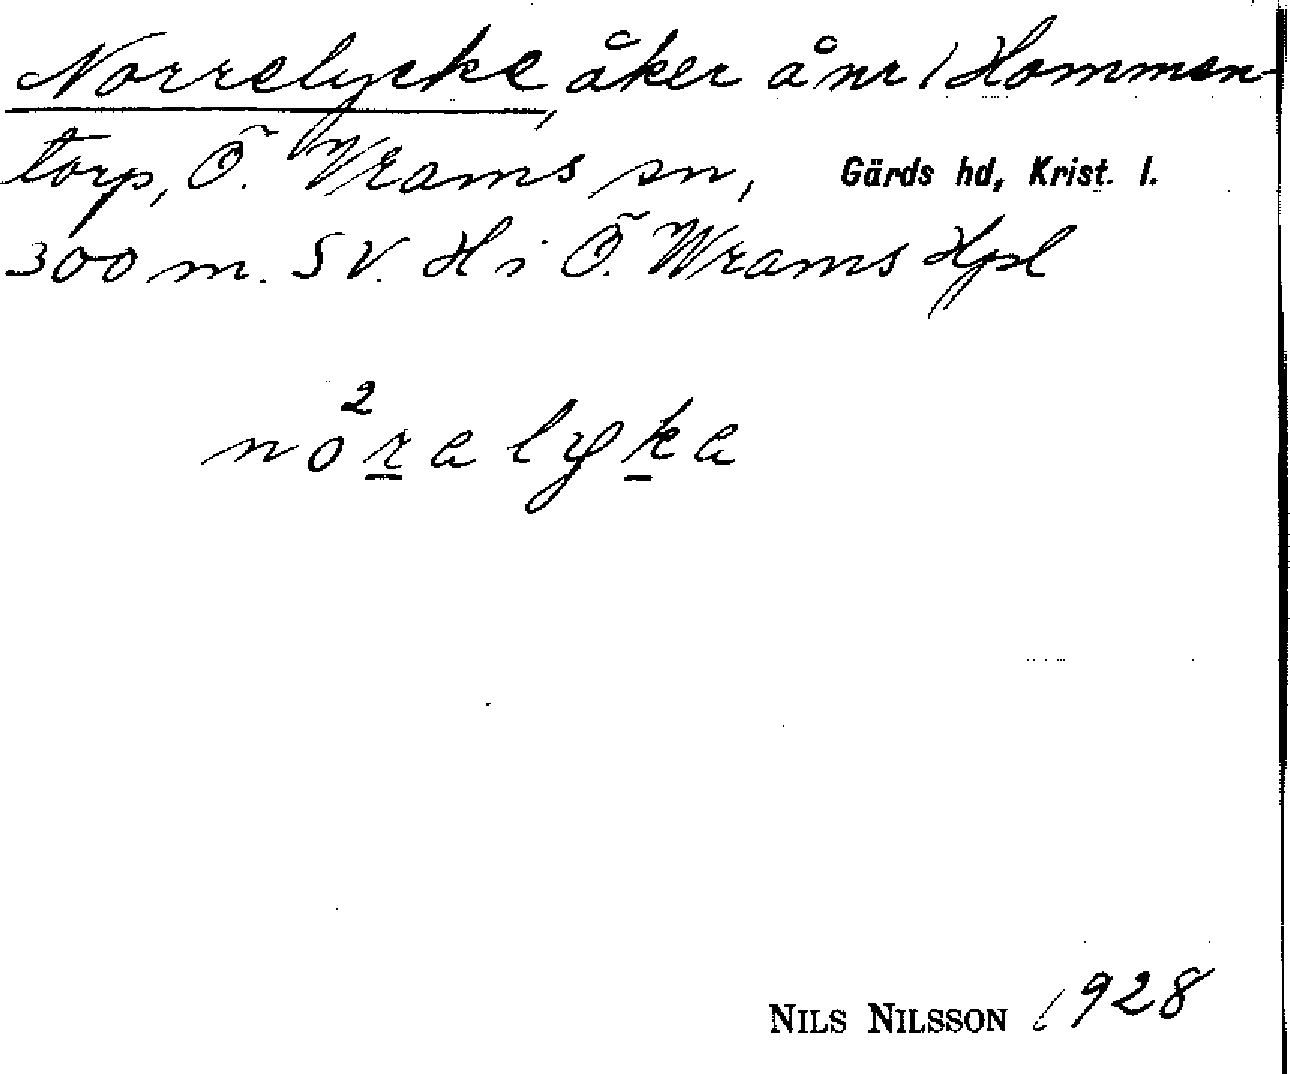 Norrelycke, åker å nr 1 Hommen-
torp, Ö. Vrams sn, Gärds hd, Krist. l.
300 m. SV. H i Ö. Wrams Hpl
2
noralyka
NILS NILSSON 1928